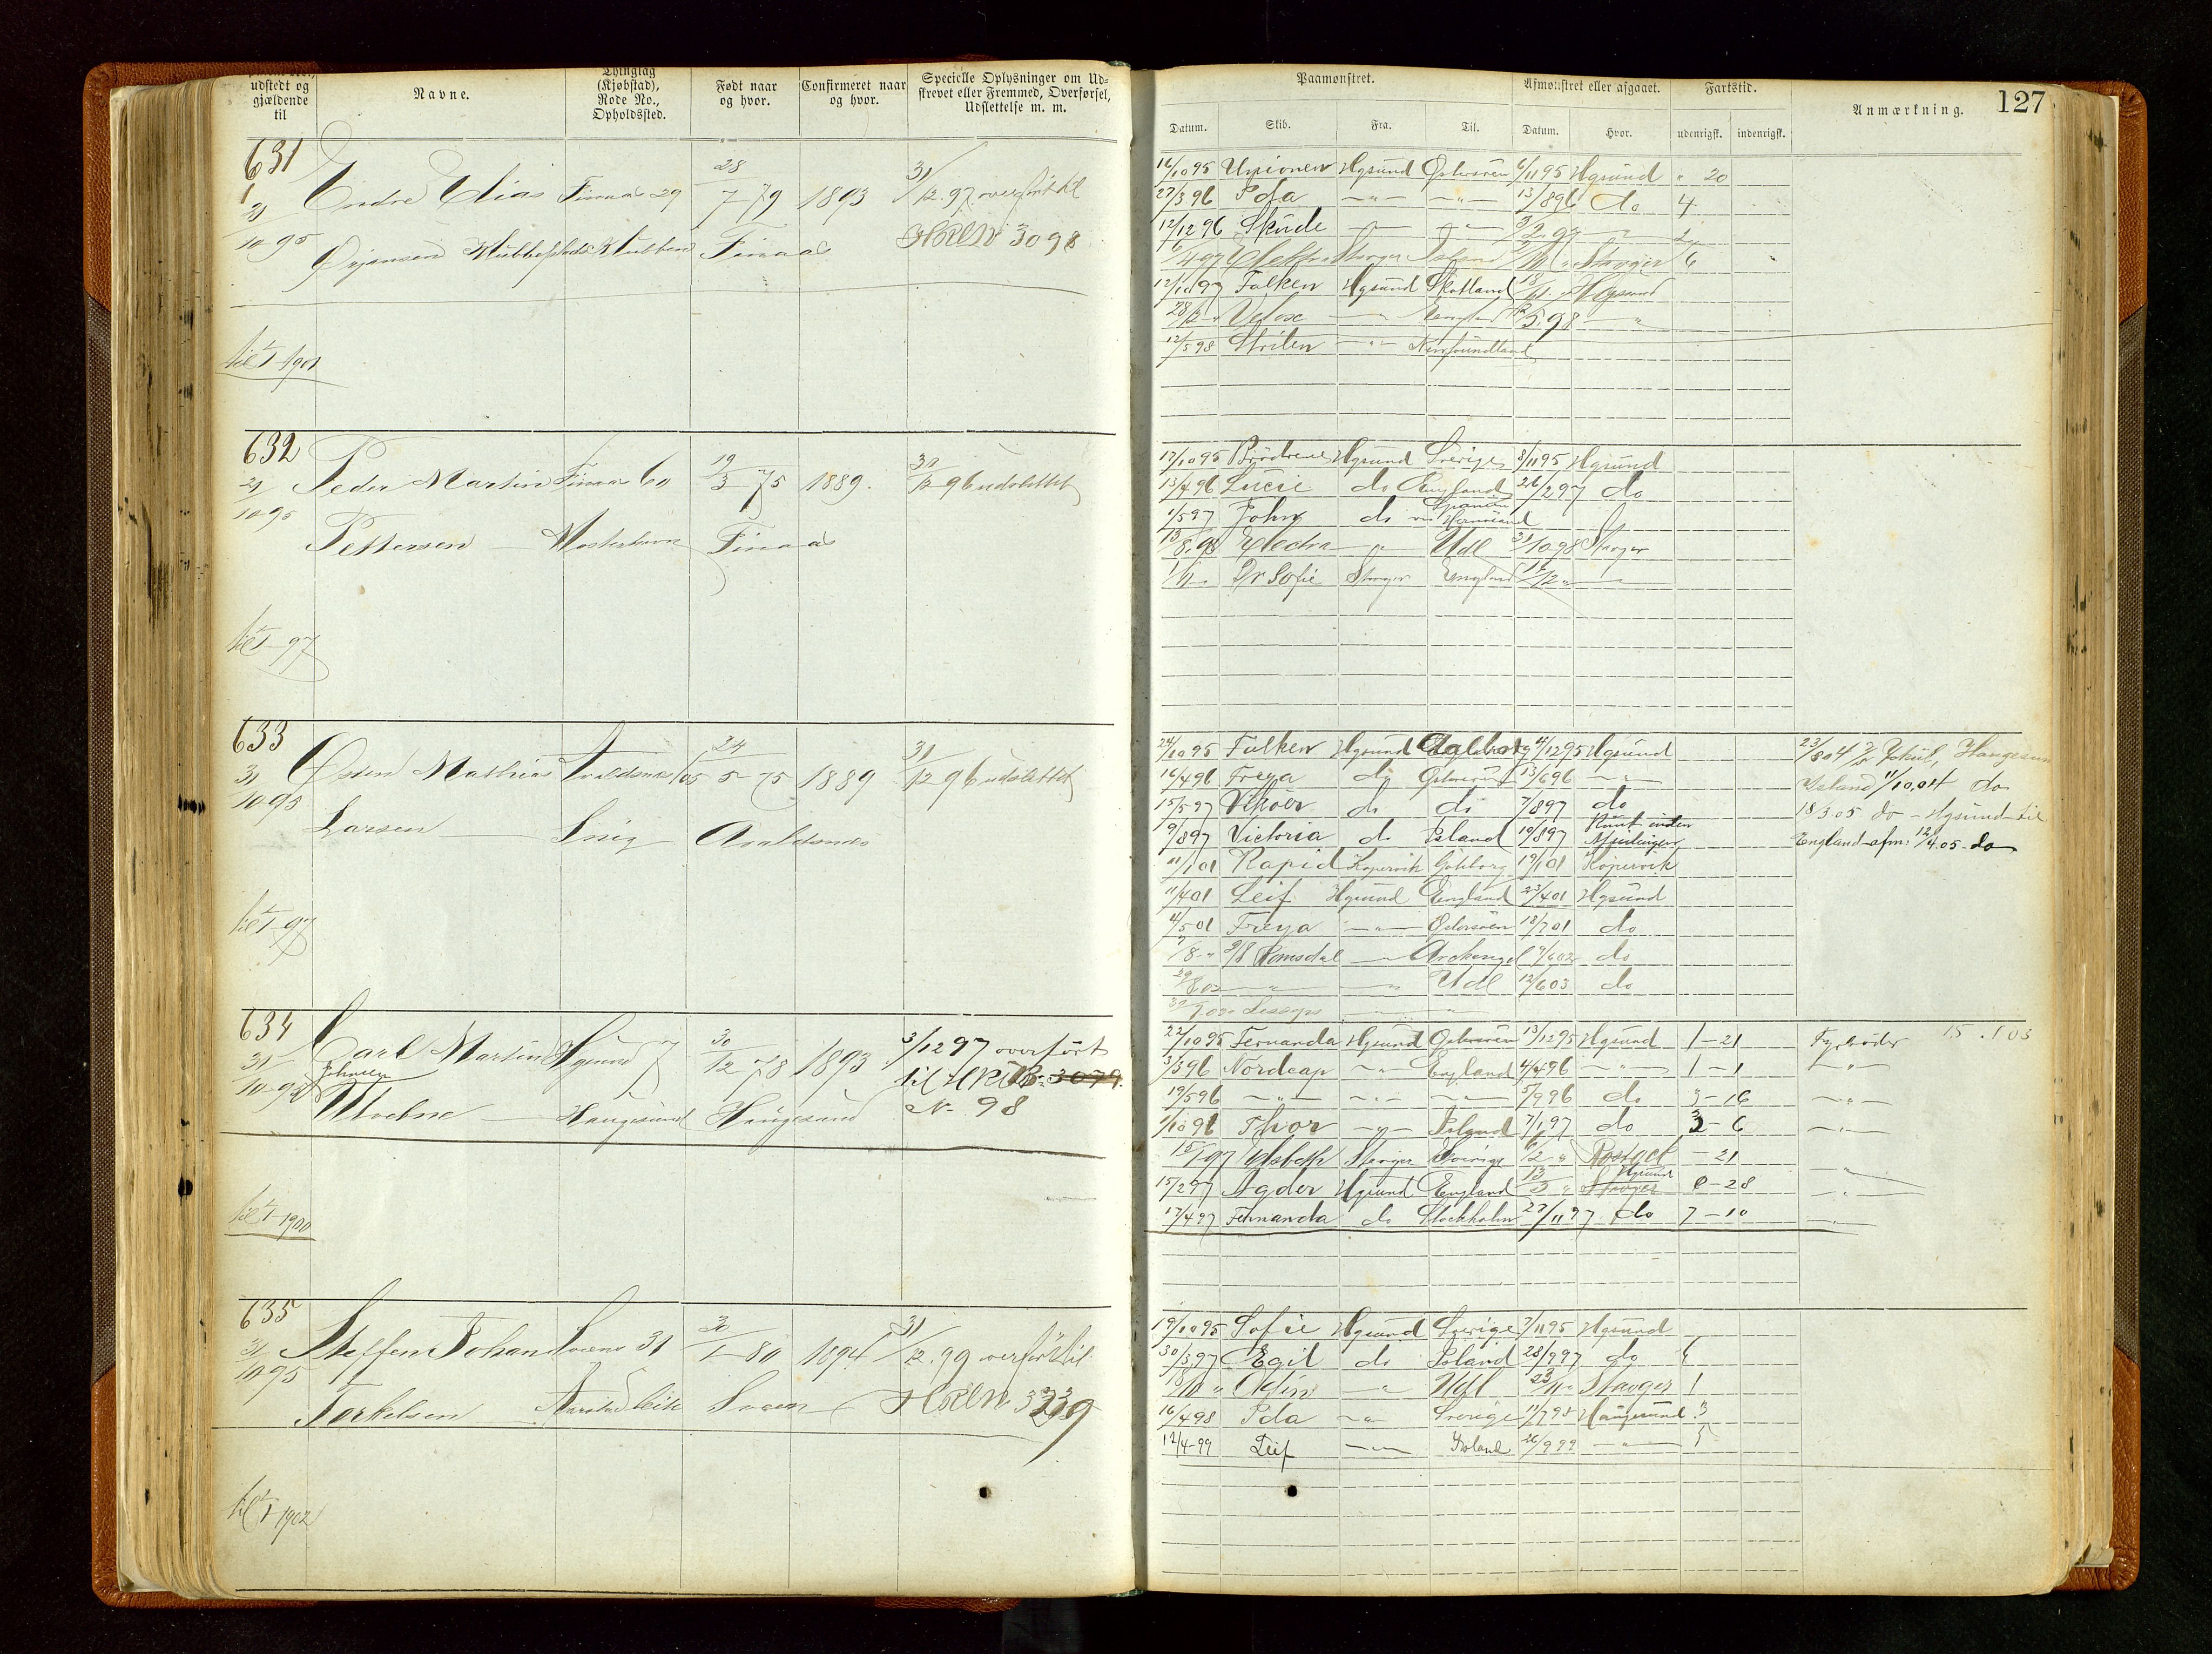 udstedt og
gjældende
til
Navne.
Thinglag
(Kjøbstad),
Rode No.,
Opholdssted.
Født naar
og hvor.
Confirmeret naar
og hvor.
Specielle Oplysninger om Ud-
skrevet eller Fremmed, Overførsel,
Udslettelse m. m.
Paamønstret.
Afmønstret eller afgaaet.
Fartstid.
Anmærkning.
127
Datum. Skib. Fra. Til. Datum. Hvor. udenrigsk. indenrigsk.
631
Endre Elias Finnaas 29 28/7 79 1893 31/12.97 overført til
10 95
Finnaas 3098
til 1-1901
16/10 95 Unionen Hgsund Østersøen 6/11 95 Hgsund " 20
27/3 96 Ida -"- -"- 13/8 96 do 4
12/12 96 Skude -"- -"-
Stavger 6
12/10 97 Falken Hgsund Skotland Hgsund
Vesta 5.98 -"-
12/5 98 Strilen -"- Newfoundland
632
Peder Martin Finnaas 60 19/3 75 1889. 30/12 96 udslettet
10 95
Pettersen - Mosterhavn Finnaas
til 1-97
17/10 95 Brødrene Hgsund Sverige 8/11 95 Hgsund
13/4 96 Lucie do England 26/2 97 do
Spanien
1/5 97 John do
13/8.98 Electra -"- Udl 31/10 98 Stavger
Sofie Stavger England
633
Østen Mathias Avaldsnes 105 24/5-75 1889 31/12 96 udslettet
31/10 95
Larsen - Avaldsnes
til 1-97
24/10 95 Falken Hgsund Aalborg 4/12 95 Hgsund
16/4 96 Freya do Østersøen 13/6 96 -"-
15/5 97 do do 7/8 97 do
9/8 97 Victoria do Island 19/8 97
11/1 01 Rapid Kopervik Gøteborg 19/1 01 Kopervik
11/4 01 Leif Hgsund England 23/4 01 Hgsund
4/5 01 Freya -"- Østersøen 18/7 01 do
7/8 " Romsdal -"- Archangel do
29/8 02 -"- -"- Udl 12/6 03 do
23/8 04 Haugesun
Island 11/10.04 do
18 3.05 do - Hgsund til
England afm. 12/4.05 do
634
Carl Martin Hgsund 7 30/12 78 1893 3/12 97 overført
31/10-95 Johnsen til 3079.
- Haugesund Haugesund No 98
til 1-1900
22/10 95 Fernanda Hgsund Østersøen 13/12 95 Hgsund 1-21 Fyrbøder 15.1 03
3/3 96 Nordcap -"- England 4/4 96 -"- 1-1 -"-
19/5 96 -"- -"- -"- 5/9 96 do 3-16 -"-
1/10 96 Thor -"- Island 7/1 97 do 3-6 -"-
15/1 97 Elsbeth Stavger Sverige -21
Hgsund
15/2 97 Agder Hgsund England Stavger 0-28 -"-
17/4 97 Fernanda do Stockholm 27/11 97 do 7-10 -"-
635
Steffen Johan Sveens 31 30/1-80 1894 31/12.99 overført til
31/10 95
Torkelsen Sveen 3239
til 1-1902
19/10 95 Sofie Hgsund Sverige 7/11 95 Hgsund
30/3 97 Egil do Island 28/9 97 do 6
18/10 " Odin -"- Udl 23/11 " Stavger 1
16/4 98 Ida -"- Sverige 11/7 98 Haugesund 3
12/4-99 Leif -"- Island 26/9 99 -"- 5